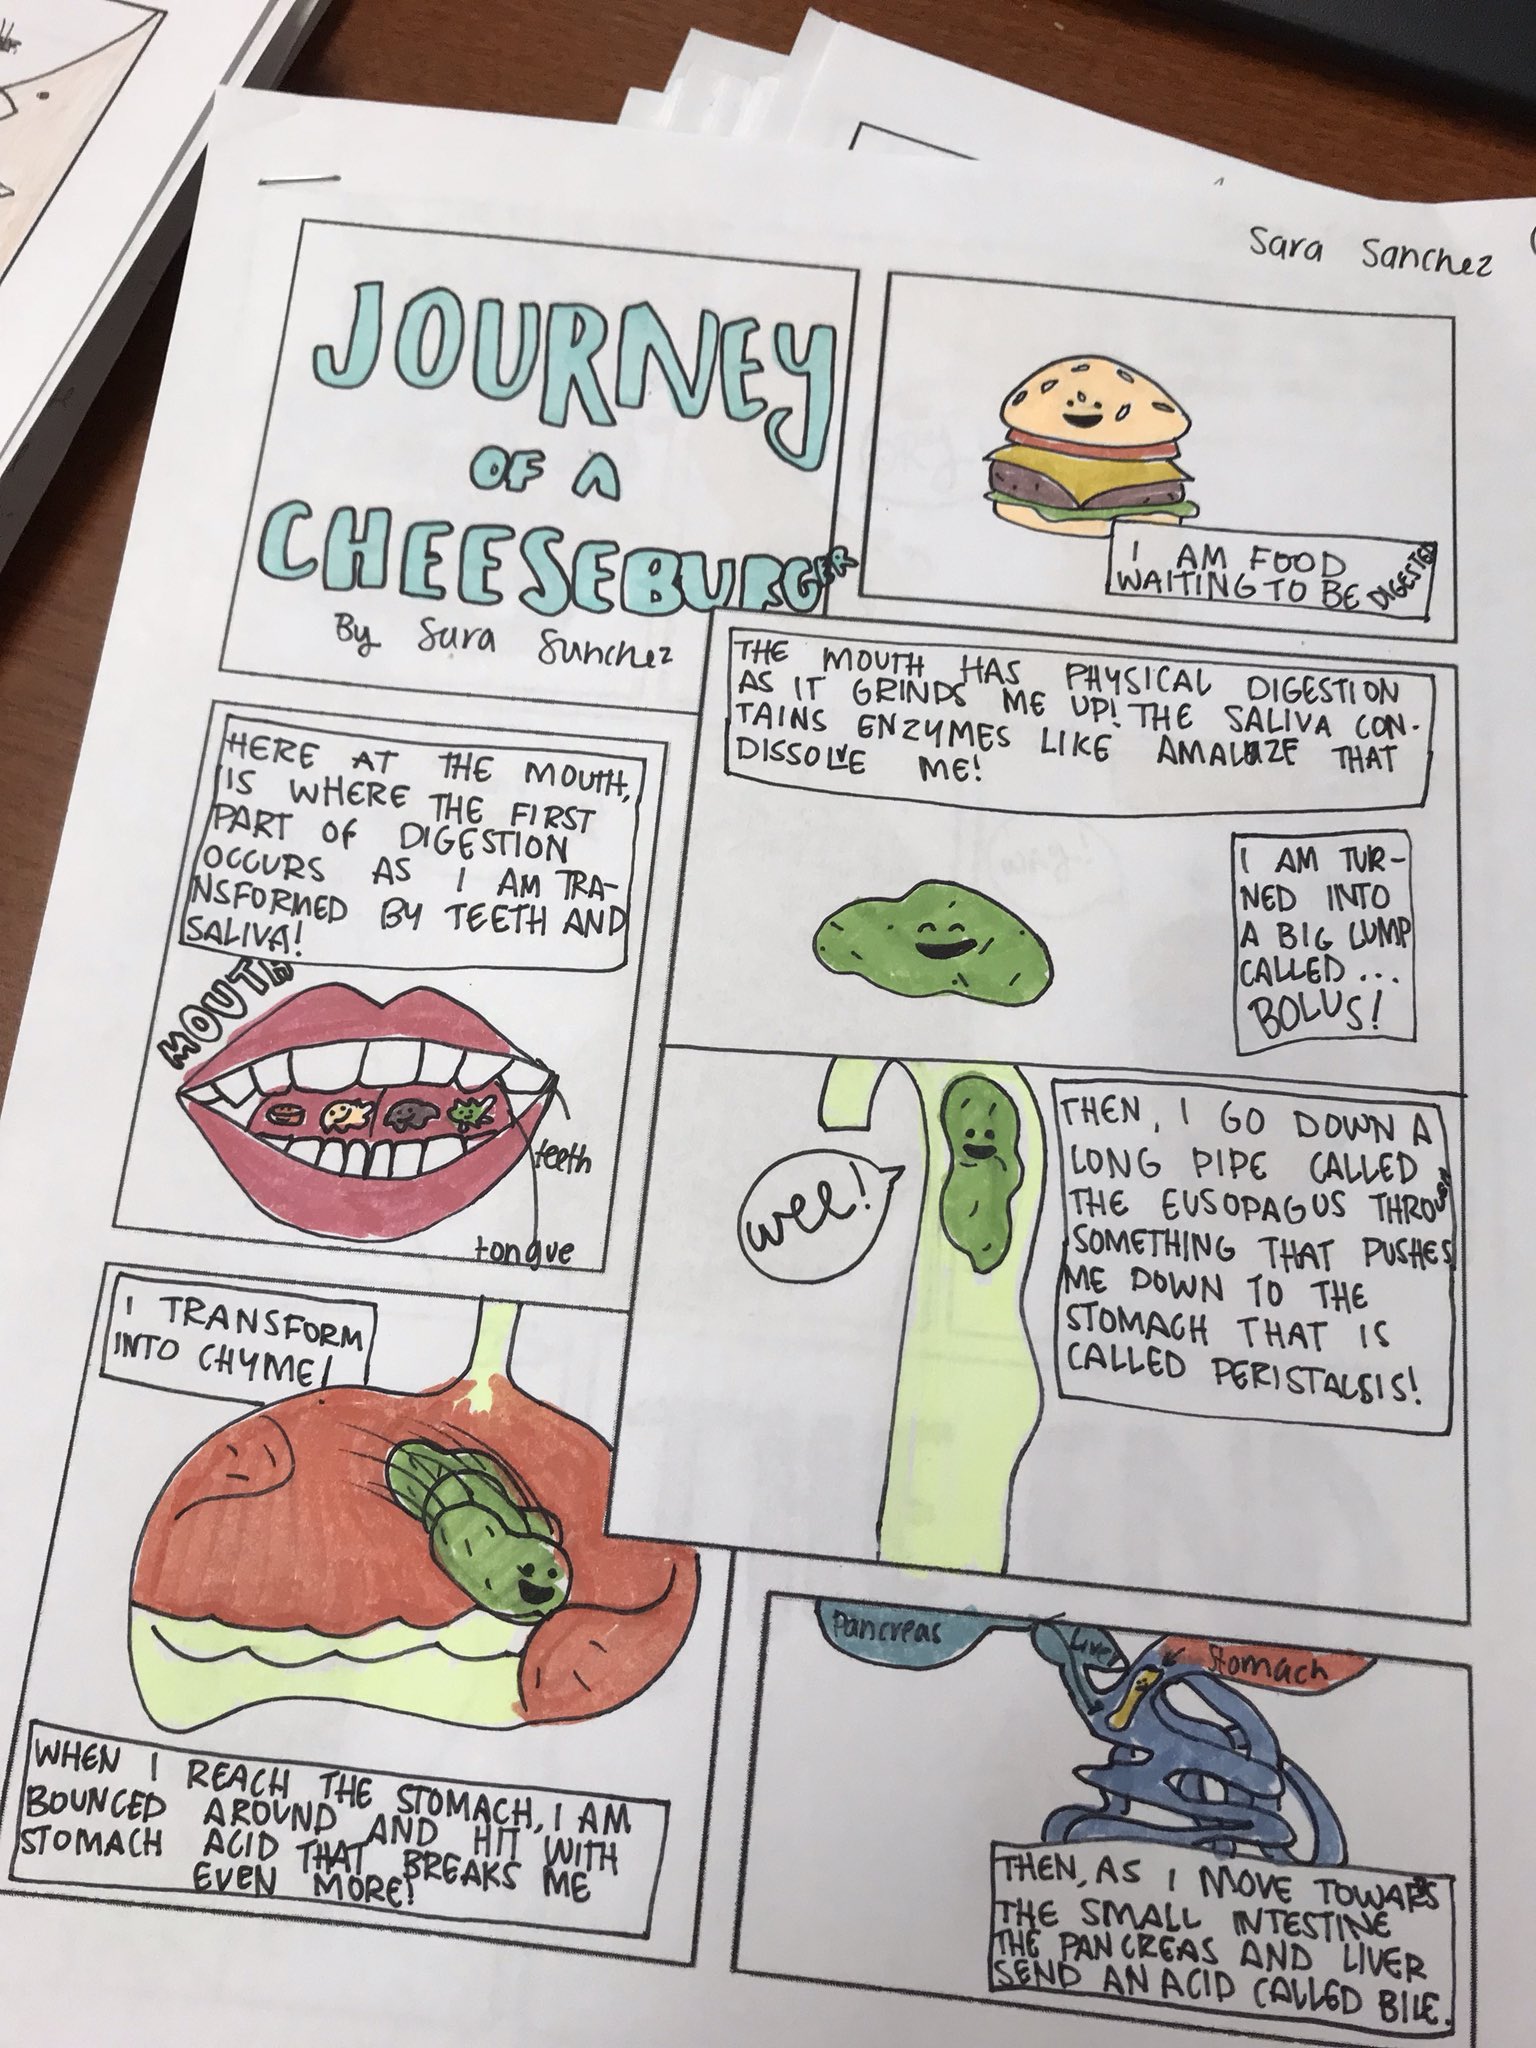 Sara Sanchez
JOURNEY
OF A
CHEESEBURGER
By Sara Sanchez
I AM FOOD
WAITING TO BE DIGESTED
HERE AT THE MOUTH,
IS WHERE THE FIRST
PART OF DIGESTION
OCCURS AS I AM TRA-
NSFORMED BY TEETH AND
SALIVA!
MOUTH
teeth
tongue
THE MOUTH HAS PHYSICAL DIGESTION
AS IT GRINDS ME UP! THE SALIVA CON-
TAINS ENZYMES LIKE AMALAZE THAT
DISSOLVE ME!
I AM TUR-
NED INTO
A BIG LUMP
CALLED...
BOLUS!
wee!
THEN, I GO DOWN A
LONG PIPE CALLED
THE EUSOPAGUS THROUGH
SOMETHING THAT PUSHES
ME DOWN TO THE
STOMACH THAT IS
CALLED PERISTALSIS!
I TRANSFORM
INTO CHYME!
WHEN I REACH THE STOMACH, I AM
BOUNCED AROUND AND HIT WITH
STOMACH ACID THAT BREAKS ME
EVEN MORE!
Pancreas
Liver
Stomach
THEN, AS I MOVE TOWARDS
THE SMALL INTESTINE
THE PANCREAS AND LIVER
SEND AN ACID CALLED BILE.